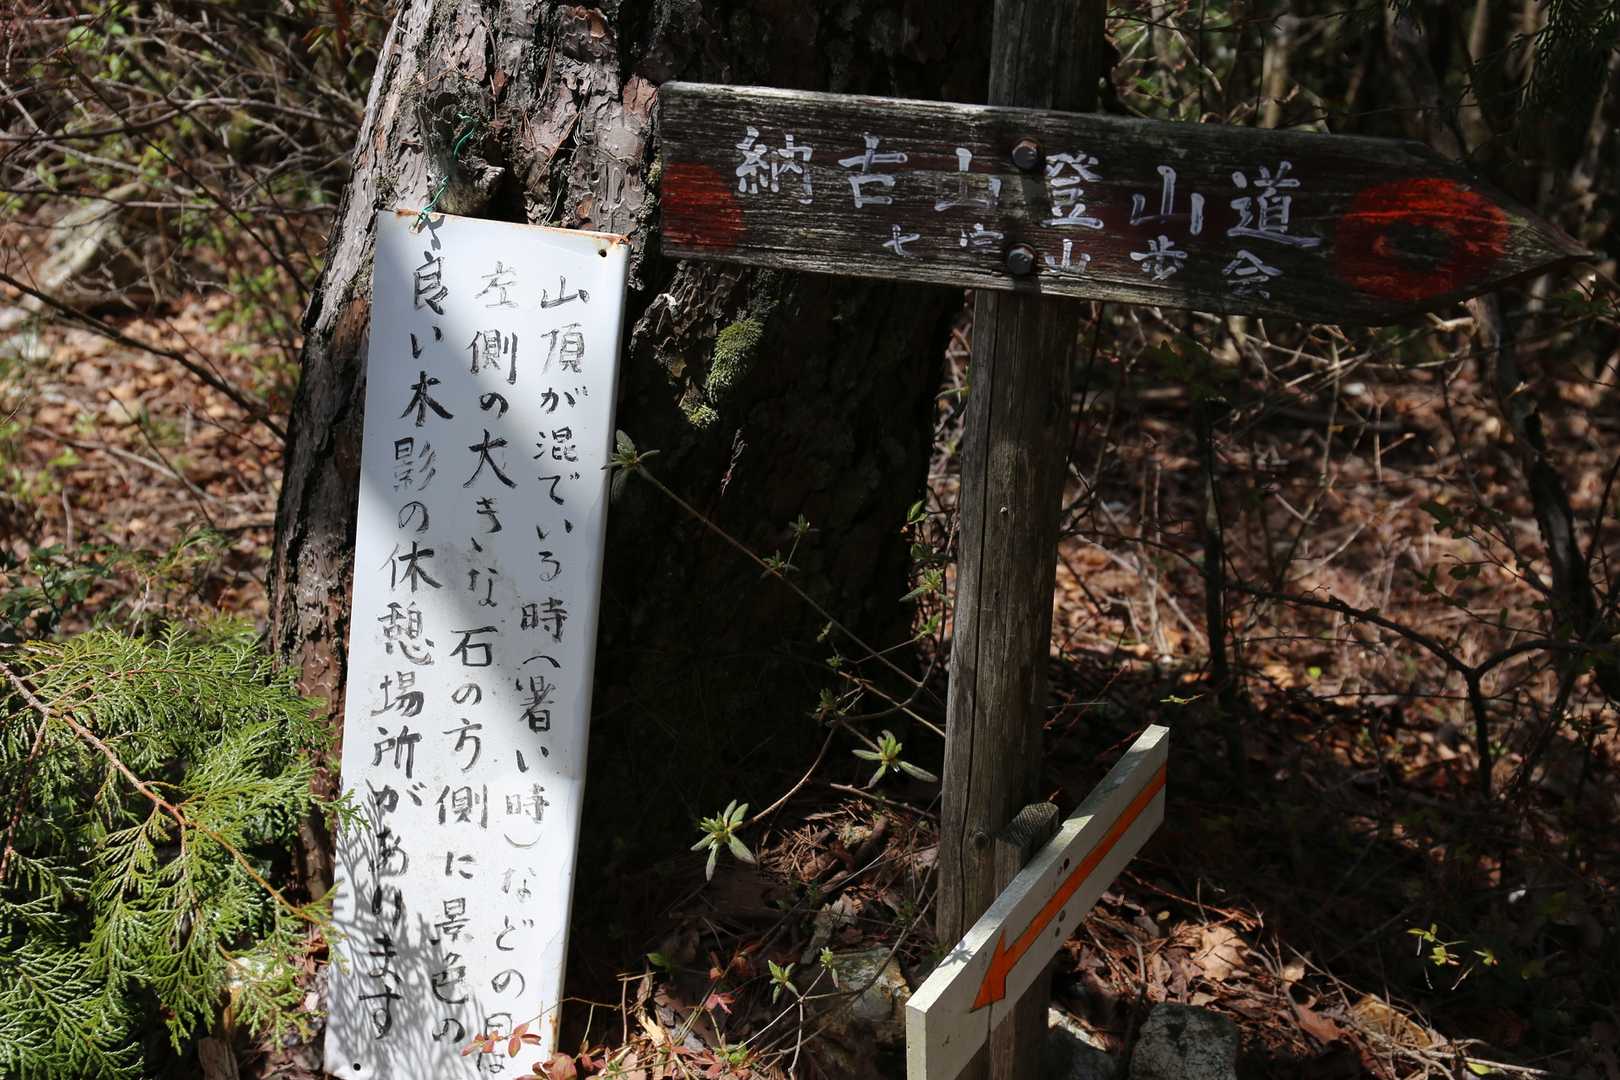 納古山登山道
七宗山歩会
山頂が混でいる時(暑い時)などの日は
左側の大きな石の方側に景色の
良い木影の休憩場所があります